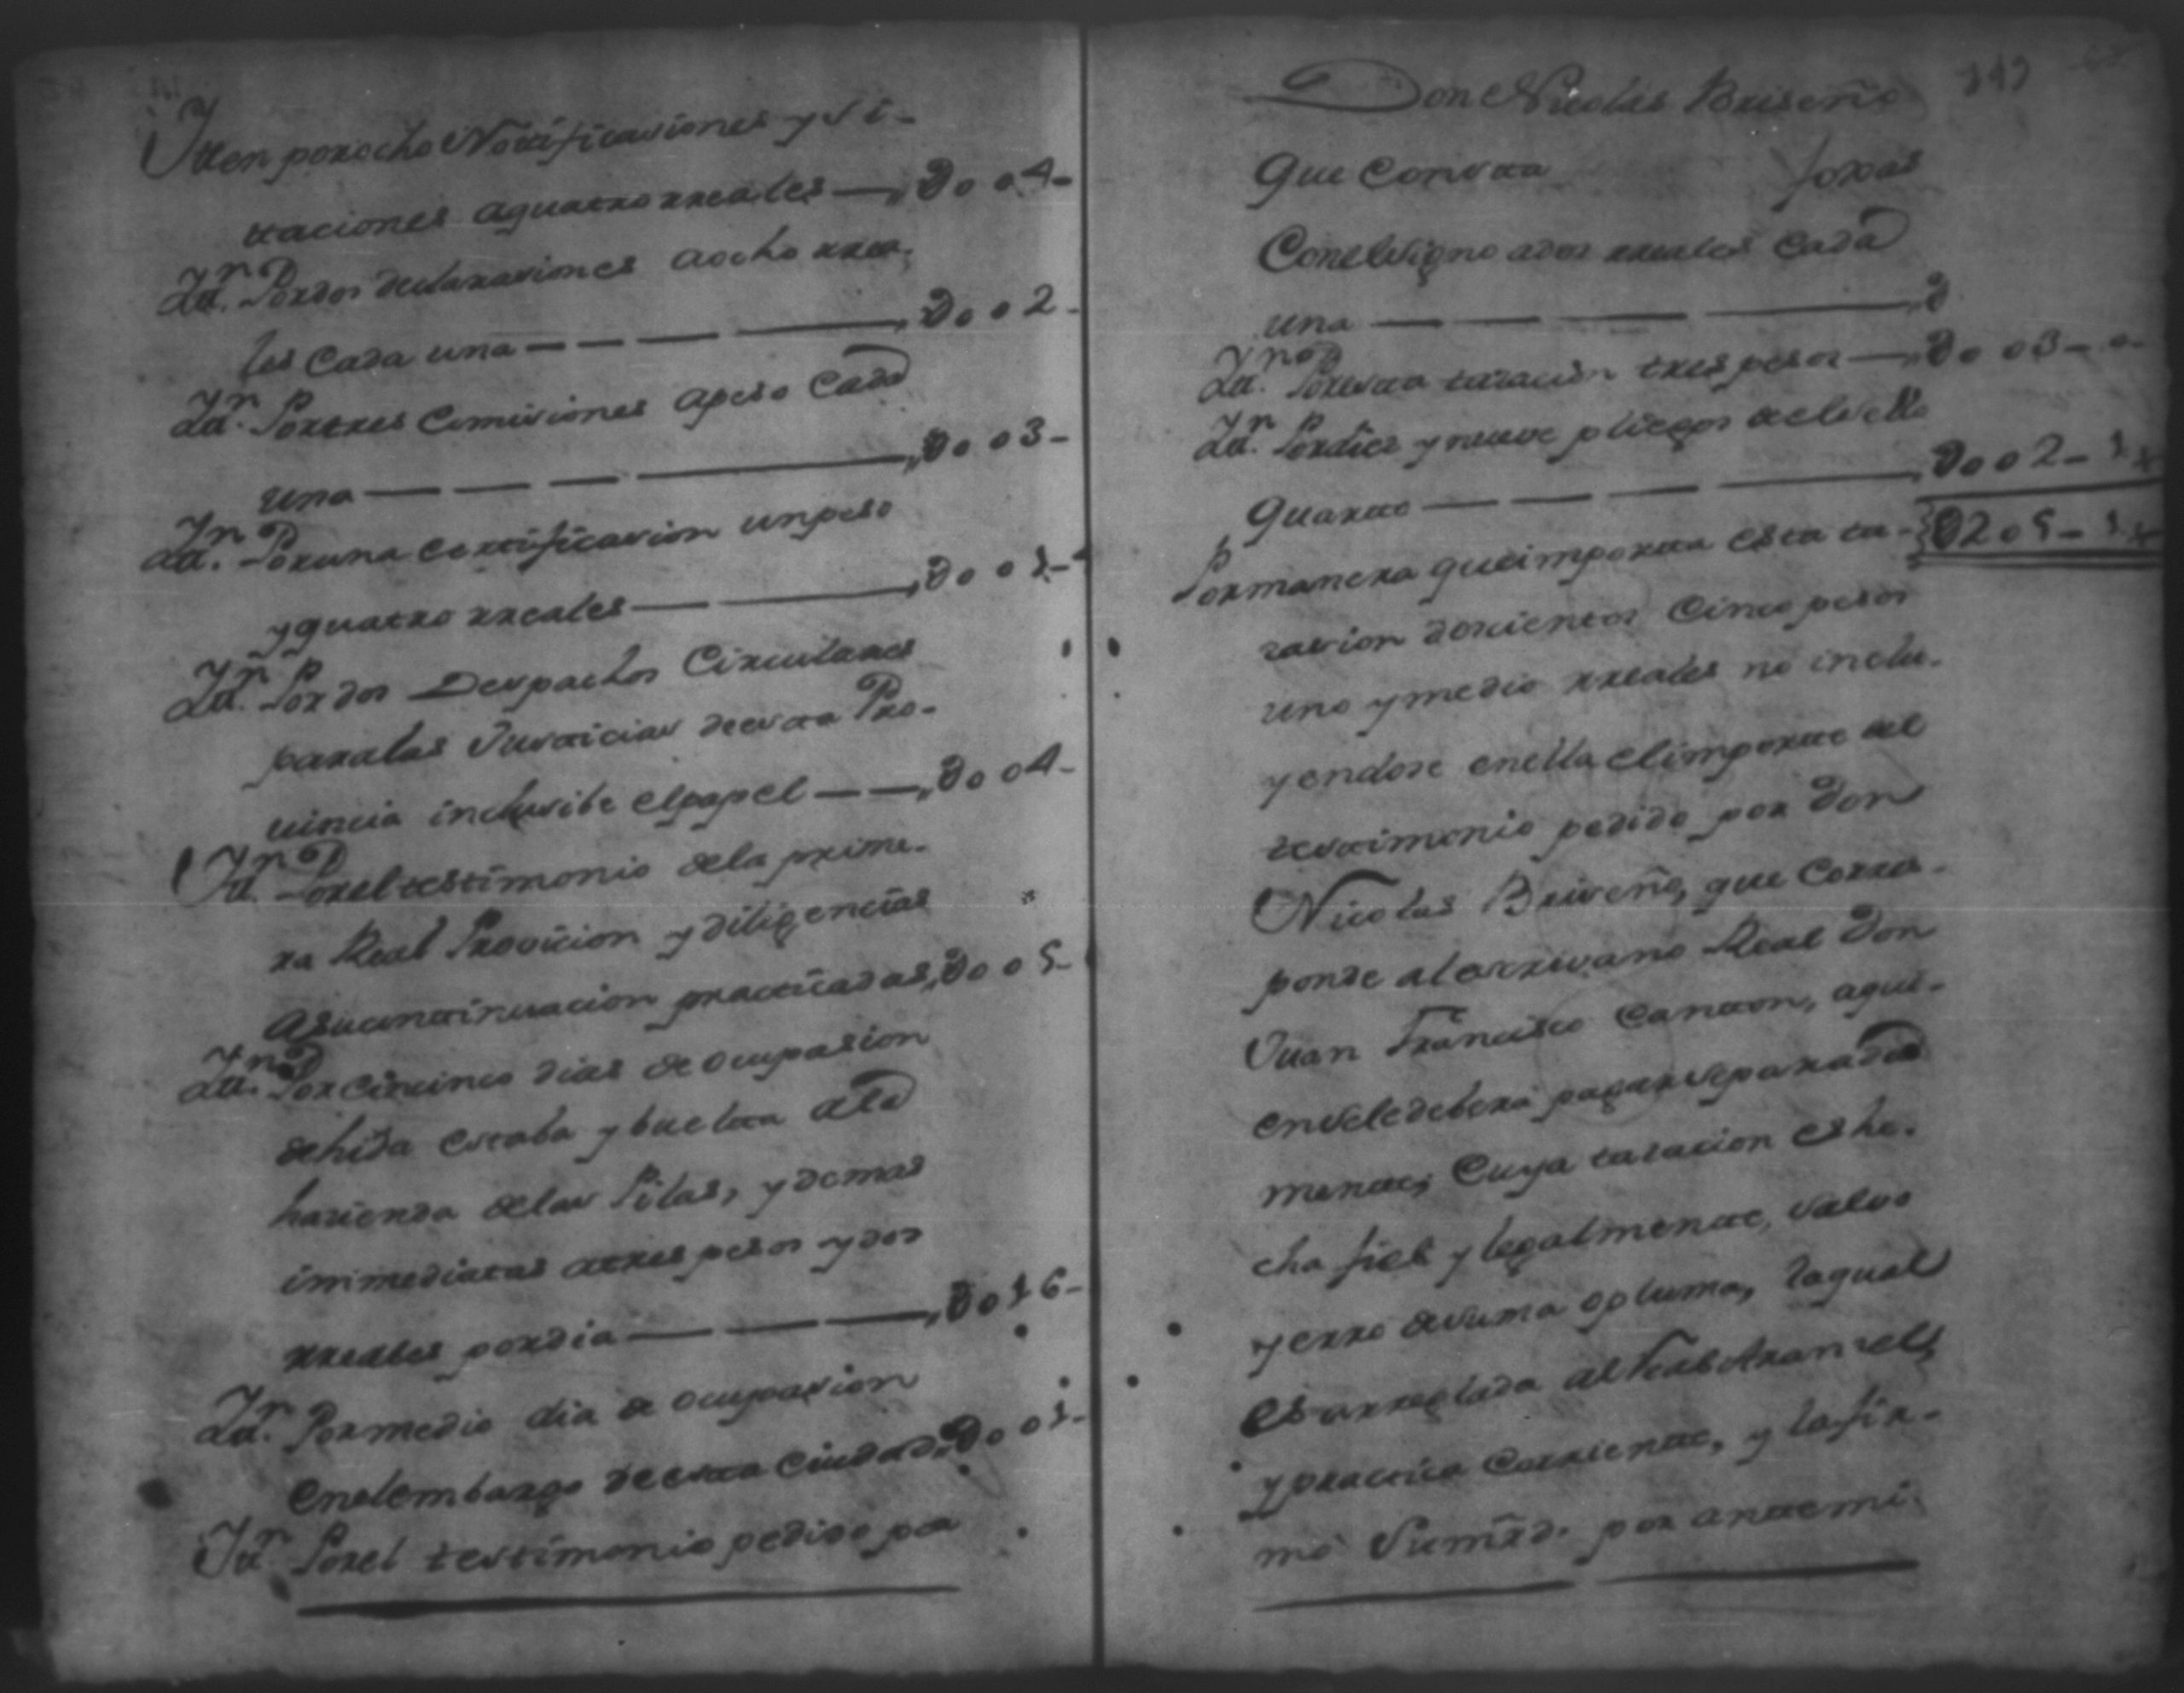 Itten por ocho Notificaciones y si-
ttaciones a quatro rreales — „ 0 0 0 4 -
Ittn. Por dos declaraciones a ocho rrea-
les Cada una — — — — „ 0 0 0 2 -
Ittn. Por tres Comisiones a peso Cada
una — — — — „ 0 0 0 3 -
Ittn. Por una certtificasion un peso
y quatro rreales — — „ 0 0 0 1 -
Ittn. Por dos Despachos Circulares
para las Justticias de estta Pro-
vincia inclusibe el papel — — „ 0 0 0 4 -
Ittn. Por el testimonio de la prime-
ra Real Provicion y diligencias
a su conttinuacion practticadas, „ 0 0 0 5 -
Ittn. Por cinco dias de ocupasion
de hida estaba y buelta a la
hacienda de las Pilas, y demas
immediatas a tres pesos y dos
rreales por dia — — — „ 0 0 1 6 -
Ittn. Por medio dia de ocupasion
en el embargo de estta Ciudad „ 0 0 0 1 -
Ittn. Por el testimonio pedido por
Don Nicolas Briseño 113
que Constta foxas
Con el signo a dos rreales Cada
una — — — — „ 0
Ittn. Por estta tasacion tres pesos — „ 0 0 0 3 - 0 -
Ittn. Por diez y nueve pliegos del sello
quartto — — — — „ 0 0 0 2 - 1 ½
Por manera que importta esta ta- 0 2 0 5 - 1 ½
sacion doscientos Cinco pesos
uno y medio rreales no inclu-
yendose en ella el importte del
testtimonio pedido por Don
Nicolas Briseño, que Corres-
ponde al escrivano Real Don
Juan Francisco Cantton, a qui-
en se le debera pagar separada
mentte, Cuya tasacion es he-
cha fiel y legalmentte, salvo
yerro de suma o pluma, la qual
es arreglada al Real Aransel,
y practtica Corrientte, y la fir-
mó Su mrd. por antte mi